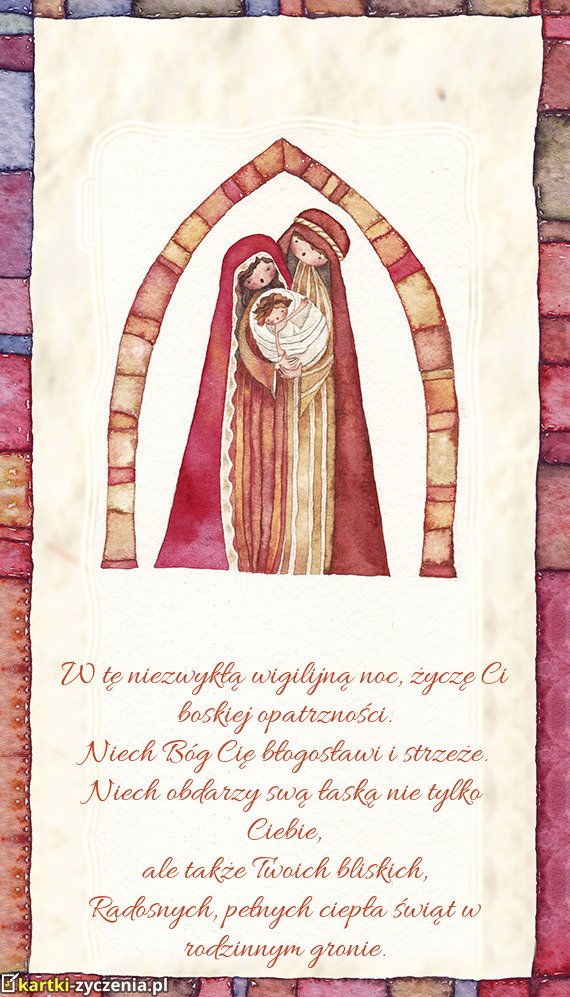 W tę niezwykłą wigilijną noc, życzę Ci
boskiej opatrzności.
Niech Bóg Cię błogosławi i strzeże.
Niech obdarzy swą łaską nie tylko
Ciebie,
ale także Twoich bliskich,
Radosnych, pełnych ciepła świąt w
rodzinnym gronie.
kartki-zyczenia.pl